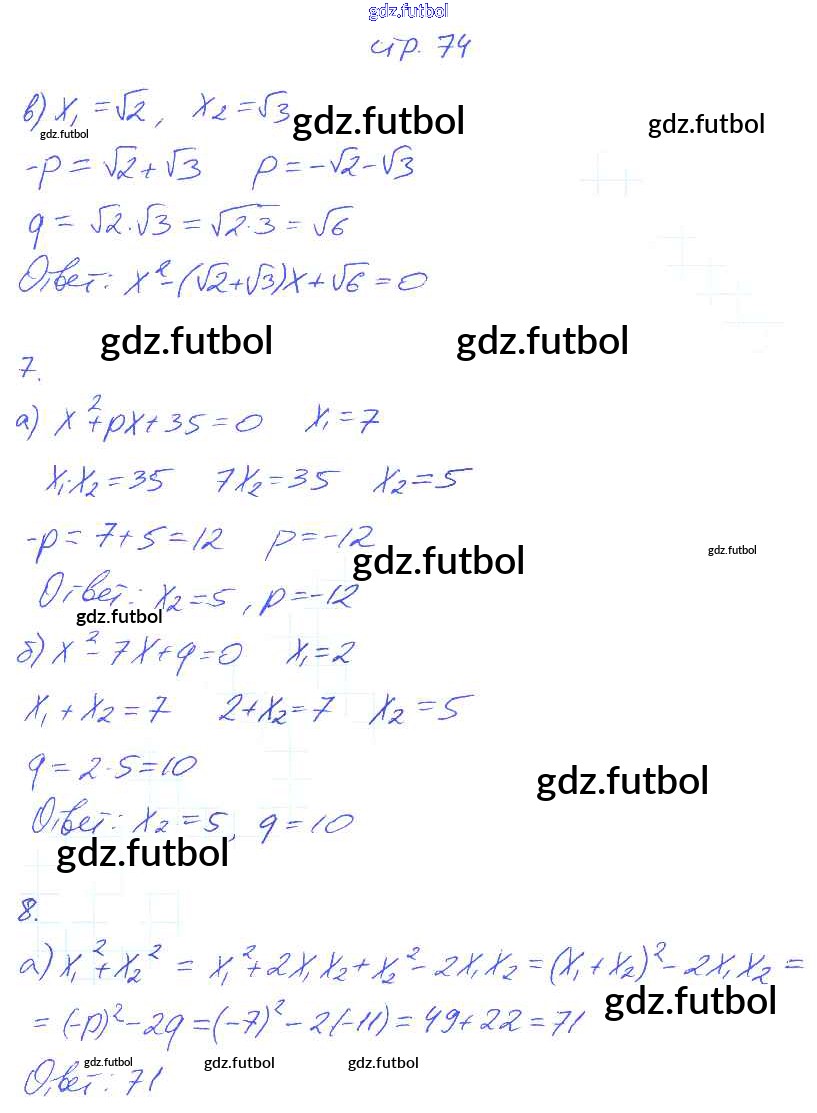 gdz.futbol
стр. 74
в) x₁ = √2, x₂ = √3 gdz.futbol gdz.futbol
gdz.futbol
-p = √2 + √3 p = -√2 - √3
q = √2 · √3 = √2·3 = √6
Ответ: x² - (√2 + √3)x + √6 = 0
gdz.futbol gdz.futbol
7.
а) x² + px + 35 = 0 x₁ = 7
x₁·x₂ = 35 7x₂ = 35 x₂ = 5
-p = 7 + 5 = 12 p = -12
gdz.futbol gdz.futbol
Ответ: x₂ = 5, p = -12
gdz.futbol
б) x² - 7x + q = 0 x₁ = 2
x₁ + x₂ = 7 2 + x₂ = 7 x₂ = 5
q = 2 · 5 = 10
gdz.futbol
Ответ: x₂ = 5, q = 10
gdz.futbol
8.
а) x₁² + x₂² = x₁² + 2x₁x₂ + x₂² - 2x₁x₂ = (x₁ + x₂)² - 2x₁x₂ =
gdz.futbol
= (-p)² - 2q = (-7)² - 2(-11) = 49 + 22 = 71
gdz.futbol gdz.futbol gdz.futbol
Ответ: 71